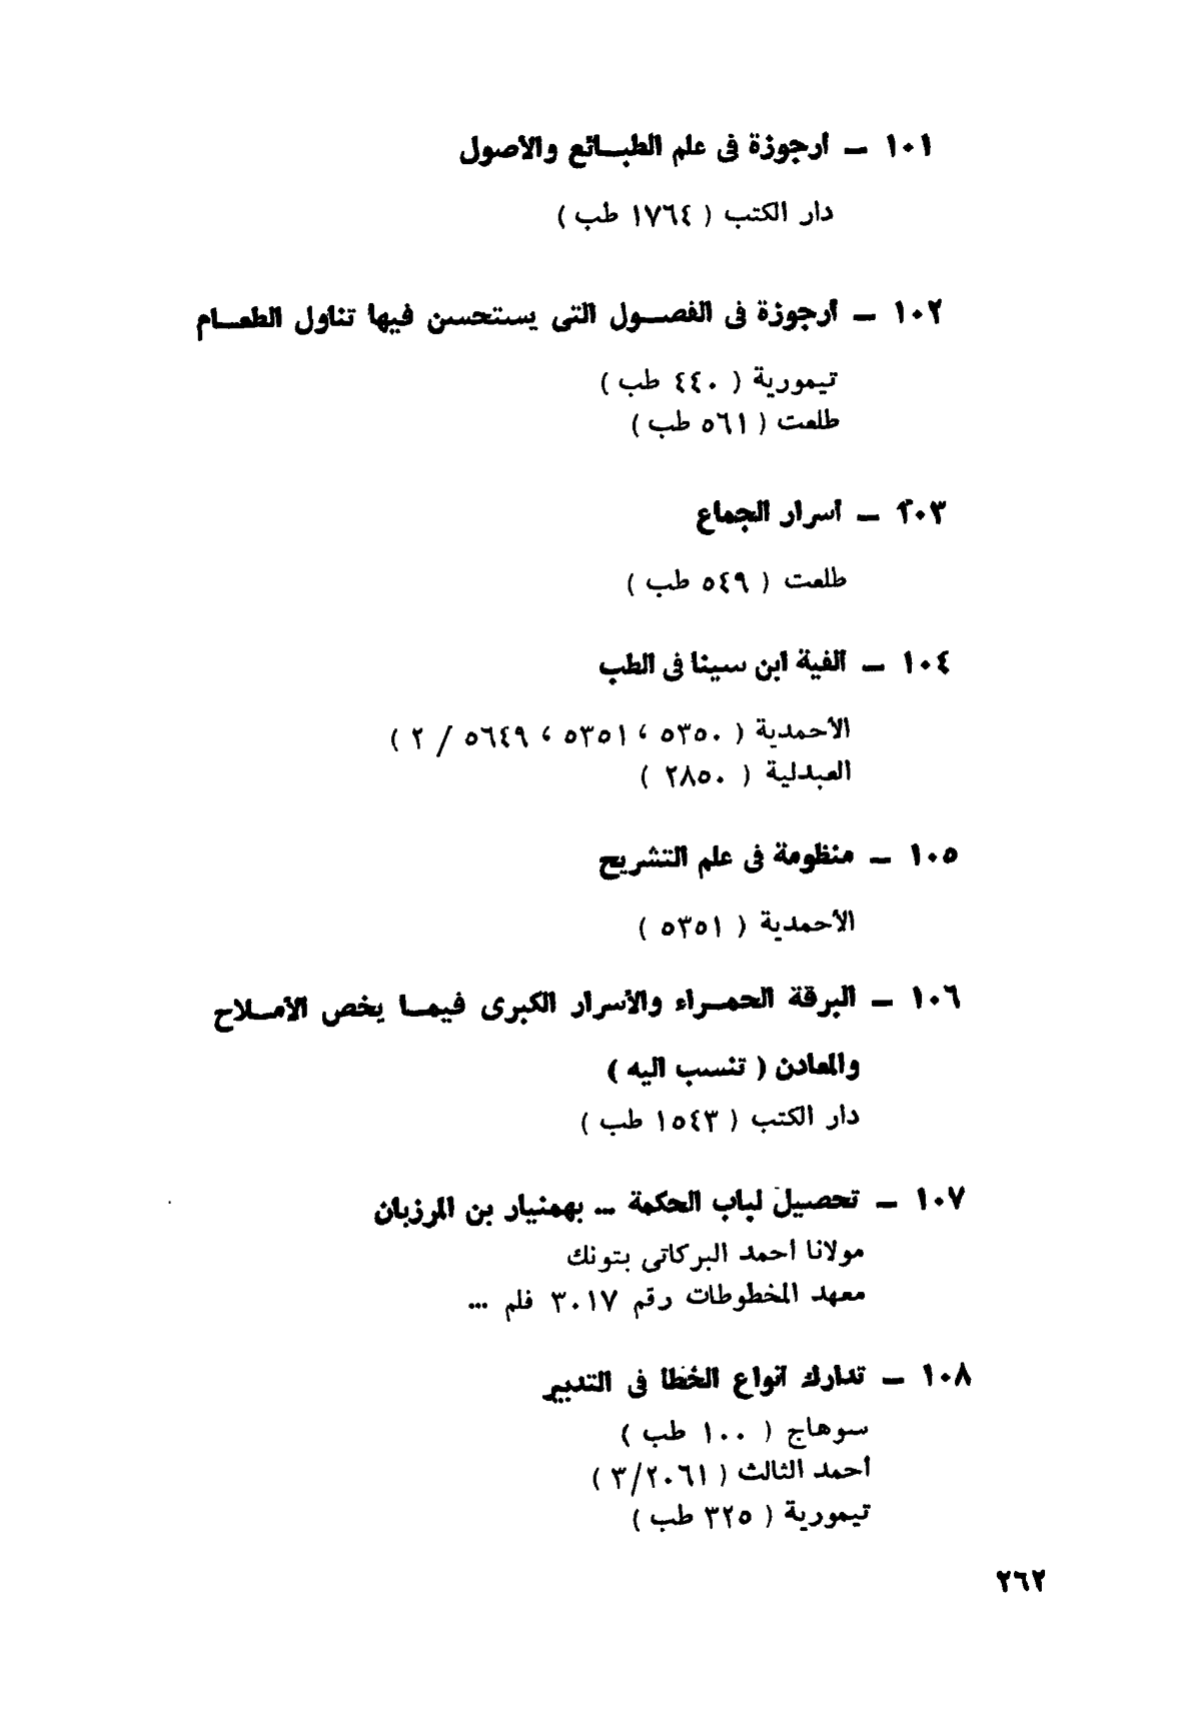 ١٠١ ــ أرجوزة فى علم الطبــائع والأصول
دار الكتب ( ١٧٦٤ طب )
١٠٢ ــ أرجوزة فى الفصــول التى يستحسن فيها تناول الطعــام
تيمورية ( ٤٤٠ طب )
طلعت ( ٥٦١ طب )
١٠٣ ــ أسرار الجماع
طلعت ( ٥٤٩ طب )
١٠٤ ــ ألفية ابن سينا فى الطب
الأحمدية ( ٥٣٥٠ ، ٥٣٥١ ، ٥٦٤٩ / ٢ )
العبدلية ( ٢٨٥٠ )
١٠٥ ــ منظومة فى علم التشريح
الأحمدية ( ٥٣٥١ )
١٠٦ ــ البرقة الحمــراء والأسرار الكبرى فيمــا يخص الأمــلاح
والمعادن ( تنسب اليه )
دار الكتب ( ١٥٤٣ طب )
١٠٧ ــ تحصيل لباب الحكمة ... بهمنيار بن المرزبان
مولانا أحمد البركاتى بتونك
معهد المخطوطات رقم ٣٠١٧ فلم ...
١٠٨ ــ تدارك أنواع الخطأ فى التدبير
سوهاج ( ١٠٠ طب )
أحمد الثالث ( ٣/٢٠٦١ )
تيمورية ( ٣٢٥ طب )
٢٦٢